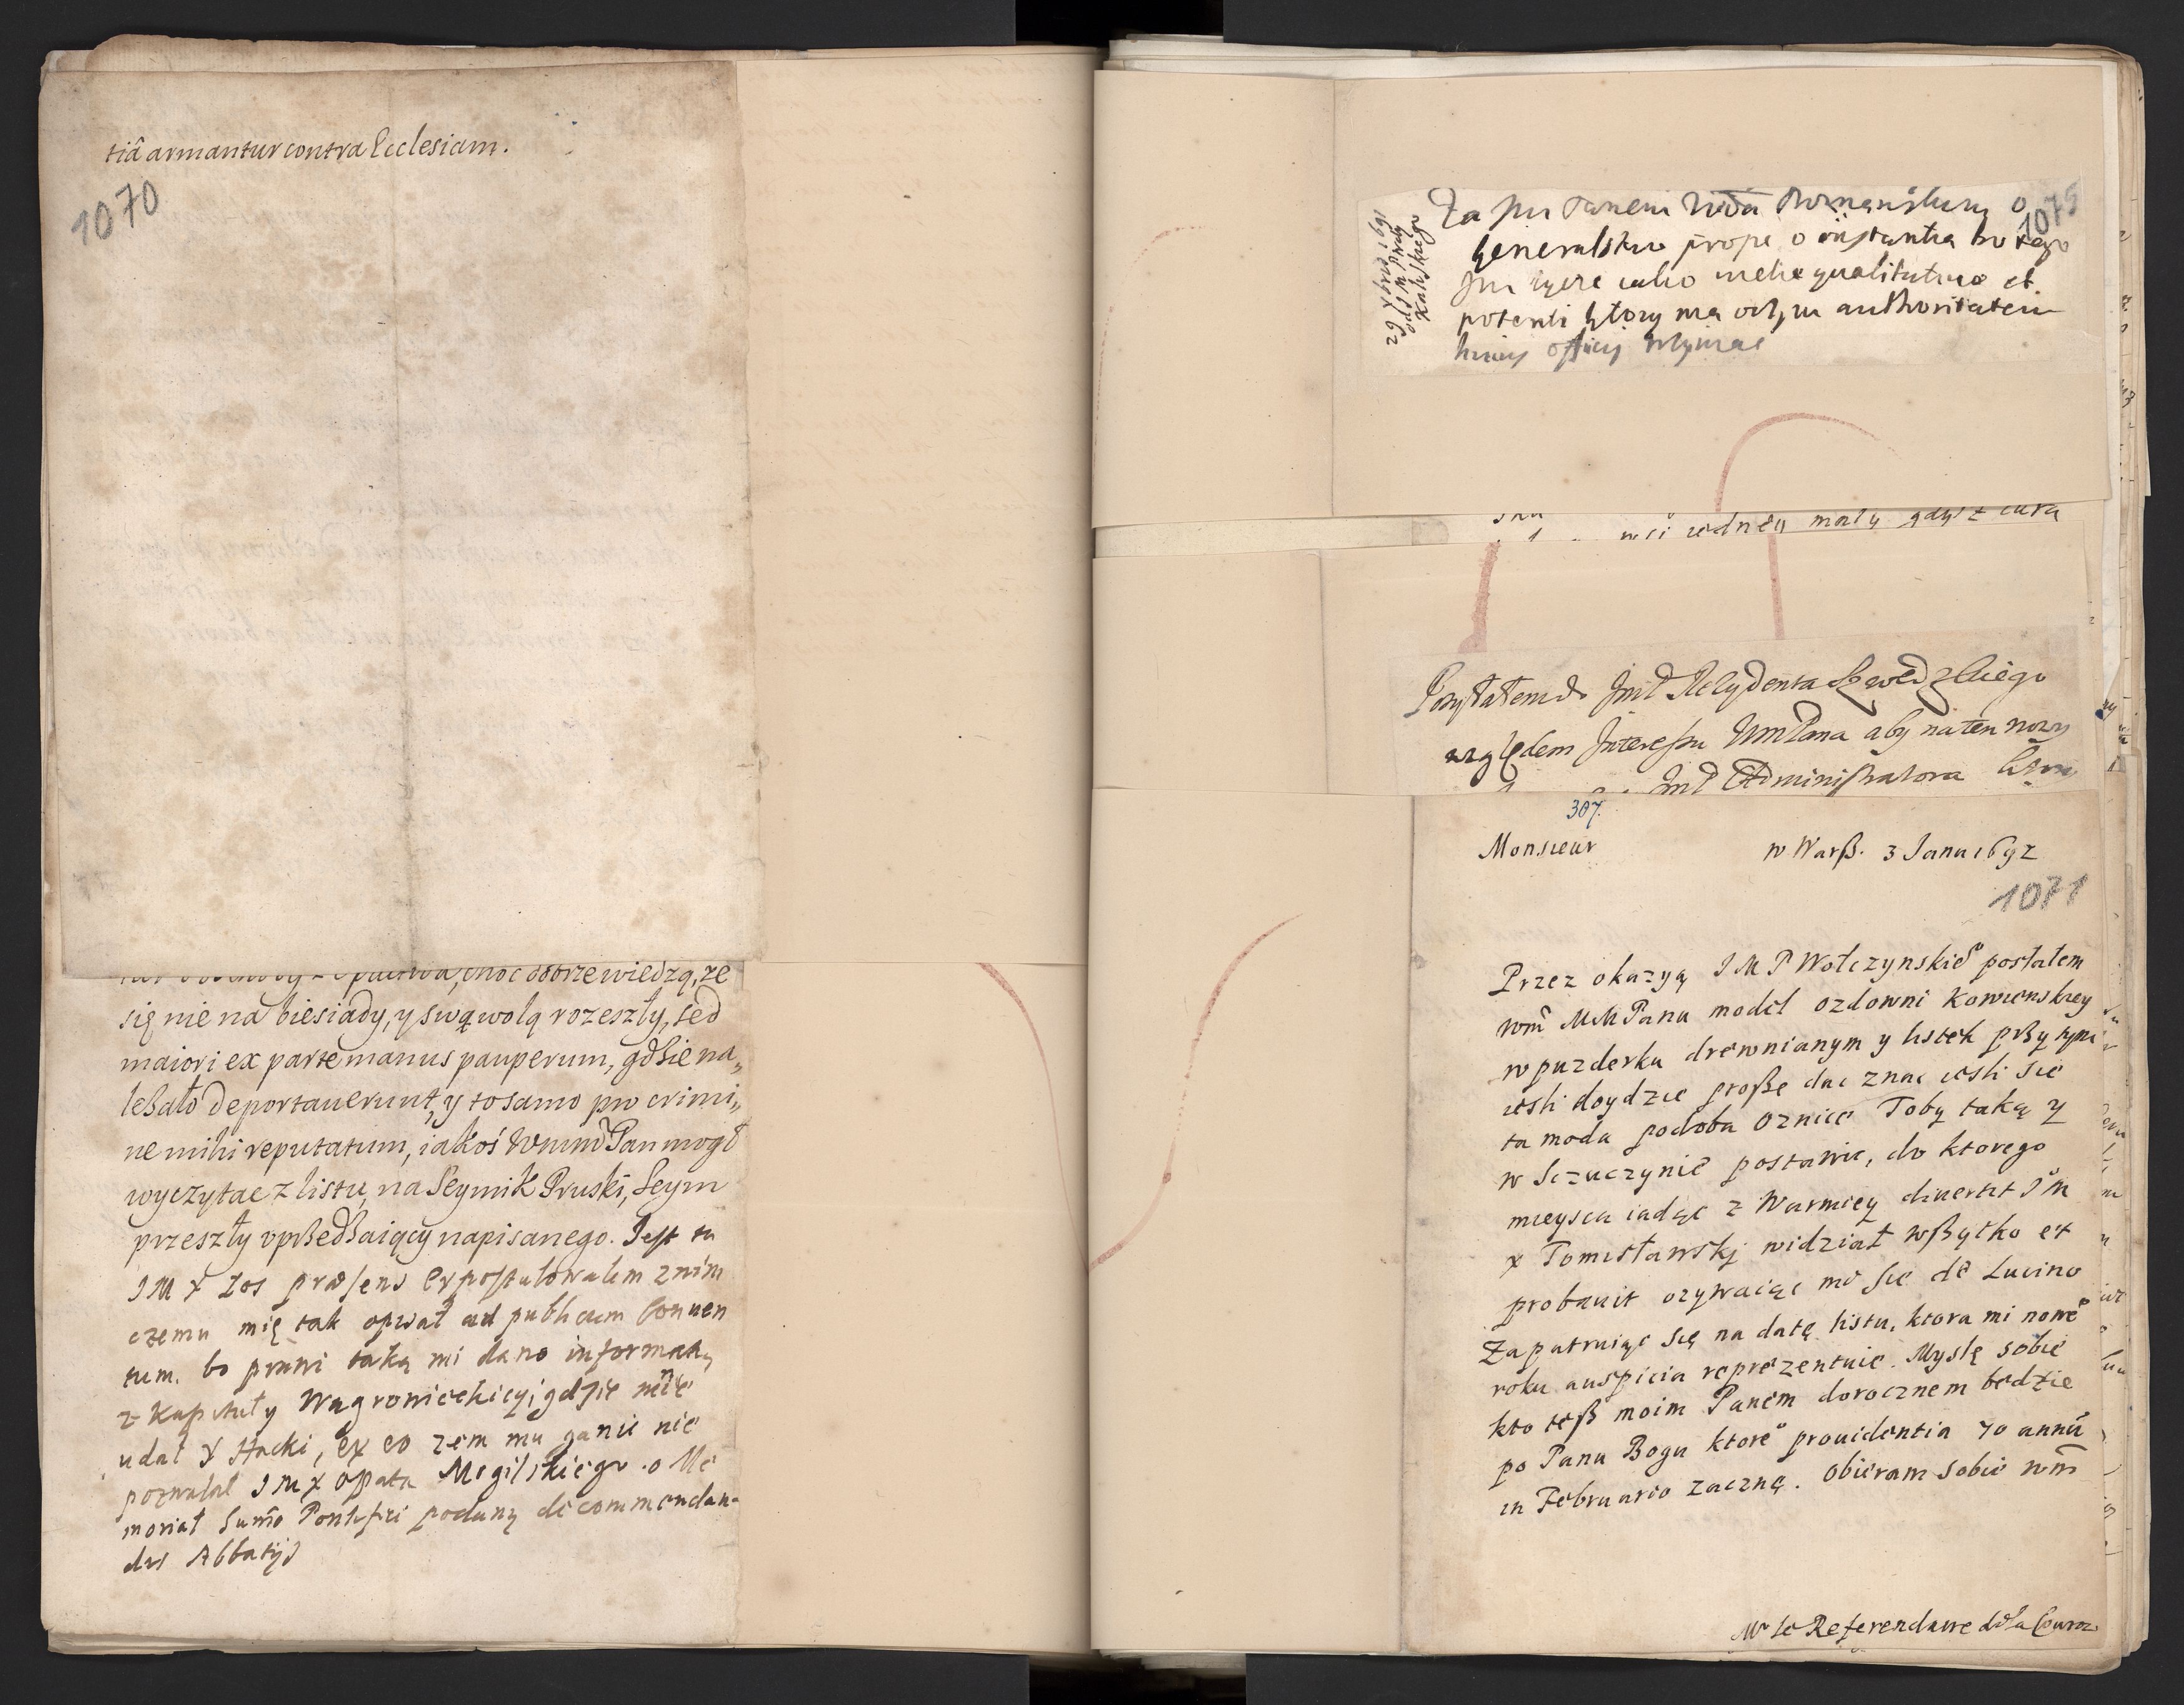 tiâ armantur contra Ecclesiam.
1070
choć dobrze wiedzą, że
się nie na biesiady, y swąwolą rozeszły, sed
maiori ex parte manus pauperum, gdßie na„
leßało deportauerunt, y to samo pro crimi„
ne mihi reputatum, iakoś WmmPan mogł
wyczytac z listu, na Seymik Pruski, Seym
przeszły vprßedßaiący napisanego. Jest tu
IM X Zos præsens expostulowałem z nim
czemu mię tak opisał ad publicum Conuen
tum. bo prawi taką mi dano informatią
z Kapituły Wągrowieckiey, gdzie mie
udał X Hacki, ex eo żem mu ganić nie
pozwalał IMX Opata Mogilskiego o Me
moriał Sumo Pontifici podany de commendan-
dis Abbatijs
1075
29 Xbris 1691
od J m Pody
Kaluskiego
Za Jm Panem Wdа Poznanskim o
Generalstwo prope o instantia bo tego
potenti ktory ma
authoritatem
huius officij
wci iedney mały gdysz cura
Posyłałem do Jmć Rezydenta Szwedzkiego
względem Interessu WmPana aby na ten nowy
Jmć Administratora
307.
Monsieur w Warß. 3 Janu 1692
1071
Przez okazyą IMP Wołczynskieº posłałem
wm̃ MMPanu model ozdowni Kowienskiey
w puzderku drewnianym y listek prßy tym
iesli doydzie proßę dać znać iesli sie
ta moda podoba oznice Toby taką y
w Sczuczynie postawic, do ktorego
mieysca iadąc z Warmiey diuertit IM
X Tomisławskj widział wßytko et
probauit ozywaiąc mi sie de Lucino
Zapatruiąc się na datę listu, ktora mi noweº
roku auspicia reprezentuie. Myslę sobie
kto teß moim Panem dorocznem bedzie
po Panu Bogu ktoreº prouidentia 70 annũ
in Februario zaczną. Obieram sobie wm̃
Mr le Referendaire de la Couron